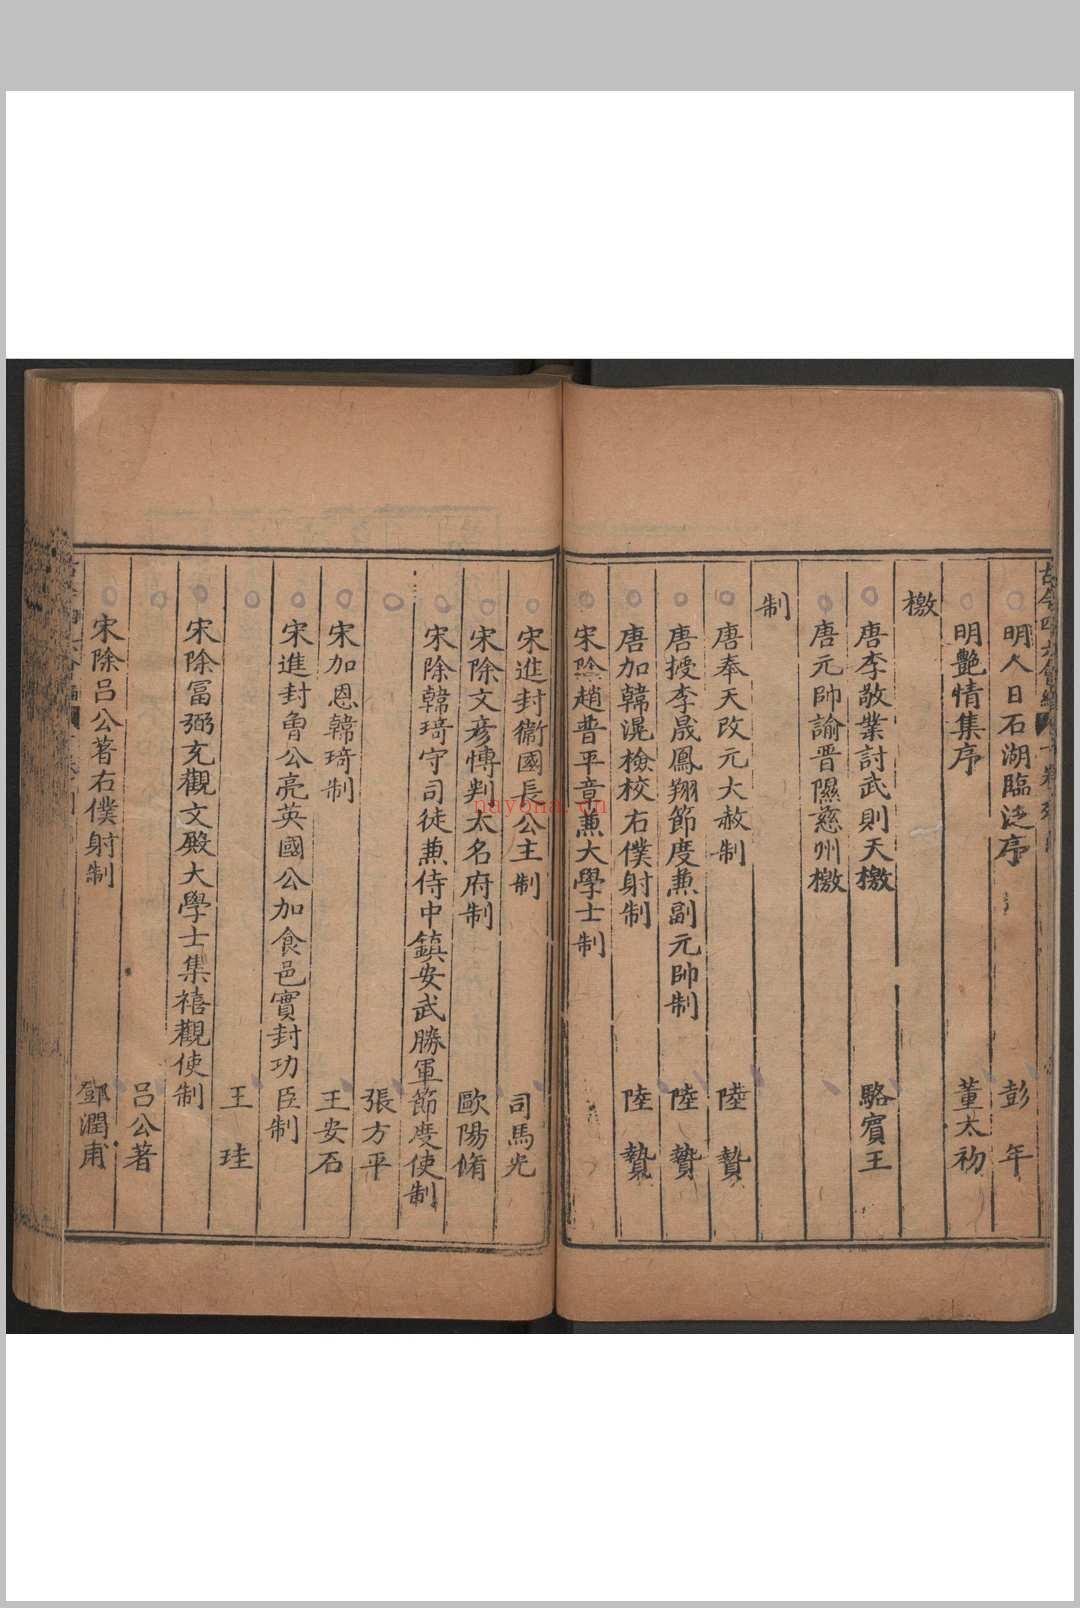 明人日石湖臨泛序 彭年
明艷情集序 董太初
檄
唐李敬業討武則天檄 駱賓王
唐元帥諭晋隰慈州檄
制
唐奉天改元大赦制 陸贄
唐授李晟鳳翔節度兼副元帥制 陸贄
唐加韓滉檢校右僕射制 陸贄
宋除趙普平章兼大學士制
宋進封衞國長公主制 司馬光
宋除文彥愽判太名府制 歐陽脩
宋除韓琦守司徒兼侍中鎮安武勝軍節度使制
張方平
宋加恩韓琦制 王安石
宋進封魯公亮英國公加食邑實封功臣制
王珪
宋除冨弼充觀文殿大學士集禧觀使制
呂公著
宋除呂公著右僕射制 鄧潤甫
nayona.cn